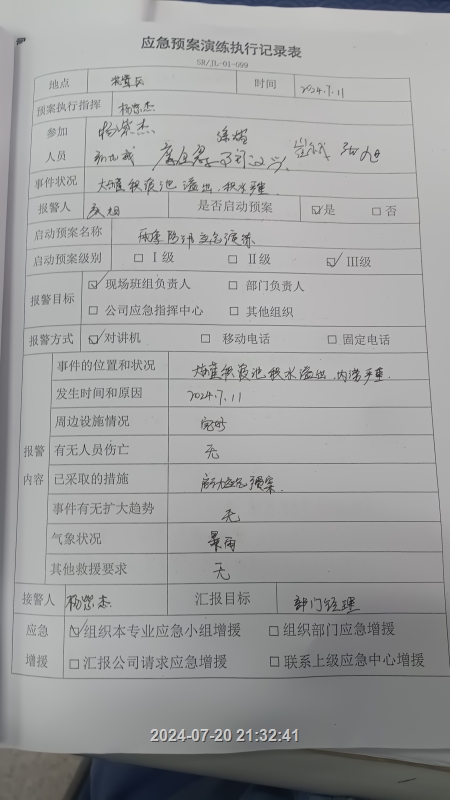 应急预案演练执行记录表
SR/JL-01-099
地点 时间 2024.7.11
预案执行指挥
参加
人员
事件状况 积液池溢出,积水严重
报警人 是否启动预案 ☑是 □否
启动预案名称 雨季防汛应急演练
启动预案级别 □Ⅰ级 □Ⅱ级 ☑Ⅲ级
报警目标 ☑现场班组负责人 □部门负责人
□公司应急指挥中心 □其他组织
报警方式 ☑对讲机 □移动电话 □固定电话
报警内容
事件的位置和状况 积液池积水溢出,内涝严重.
发生时间和原因 2024.7.11
周边设施情况 完好
有无人员伤亡 无
已采取的措施 启动应急预案.
事件有无扩大趋势 无
气象状况 暴雨
其他救援要求 无
接警人 汇报目标 部门经理
应急 ☑组织本专业应急小组增援 □组织部门应急增援
增援 □汇报公司请求应急增援 □联系上级应急中心增援
2024-07-20 21:32:41